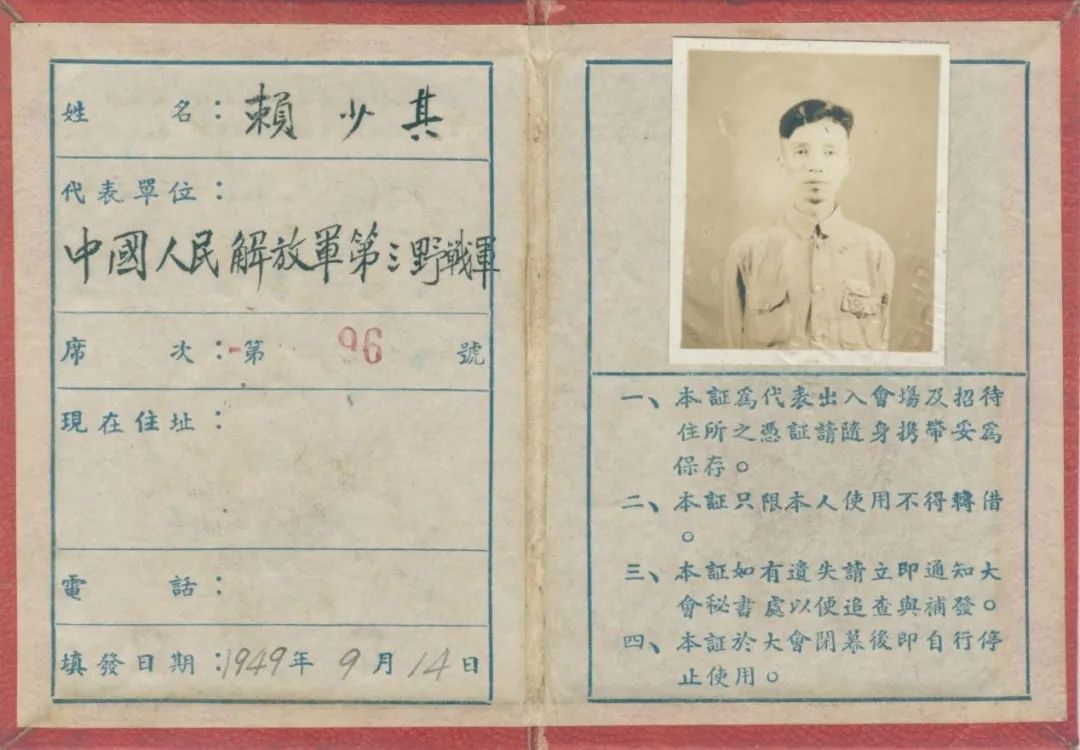 姓名：賴少其
代表單位：
中國人民解放軍第三野戰軍
席次：第 96 號
現在住址：
電話：
填發日期：1949年9月14日
一、本証爲代表出入會場及招待
住所之憑証請隨身携帶妥爲
保存。
二、本証只限本人使用不得轉借
。
三、本証如有遺失請立即通知大
會秘書處以便追查與補發。
四、本証於大會閉幕後即自行停
止使用。